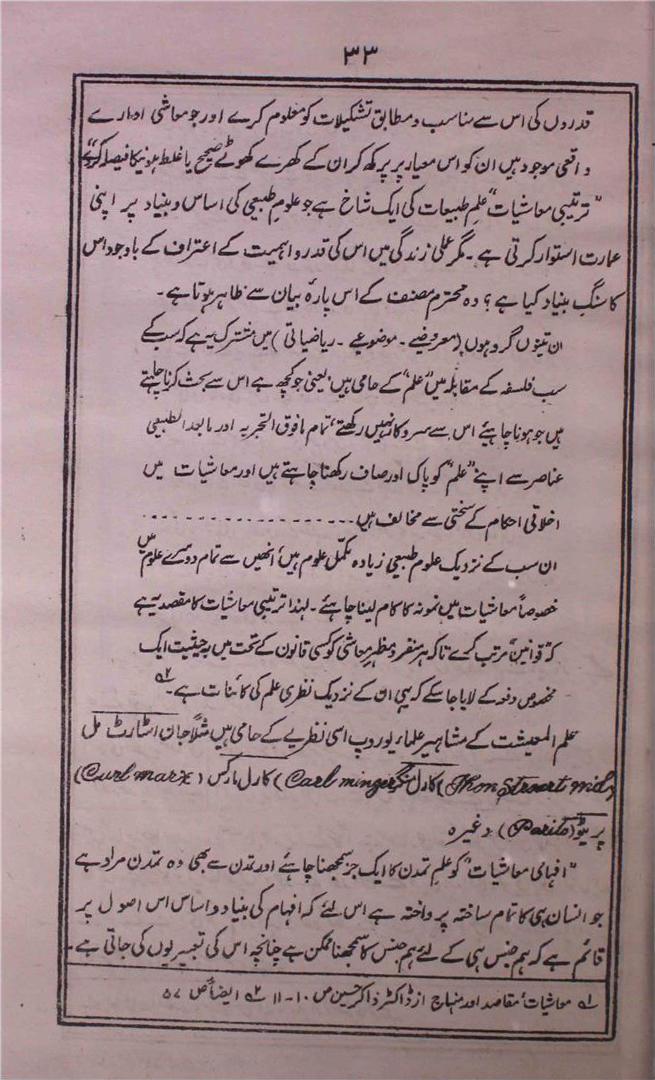 ۳۳
قدروں کی اس سے مناسب و مطابق تشکیلات کو معلوم کرے اور جو معاشی ادارے
واقعی موجود ہیں ان کو اس معیار پر پرکھ کر ان کے کھرے کھوٹے صحیح یا غلط ہونیکا فیصلہ کرے
"ترتیبی معاشیات" علم طبیعات کی ایک شاخ ہے جو علوم طبیعی کی اساس و بنیاد پر اپنی
عمارت استوار کرتی ہے۔ مگر عملی زندگی میں اس کی قدر و اہمیت کے اعتراف کے باوجود اس
کا سنگِ بنیاد کیا ہے؟ وہ محترم مصنف کے اس پارۂ بیان سے ظاہر ہوتا ہے۔
ان تینوں گروہوں (معروضے۔ موضوعے۔ ریاضیاتی) میں مشترک یہ ہے کہ سب کے
سب فلسفہ کے مقابلہ میں "علم" کے حامی ہیں، یعنی جو کچھ ہے اس سے بحث کرنا چاہتے
ہیں جو ہونا چاہیئے اس سے سروکار نہیں رکھتے، تمام مافوق التجربہ اور مابعد الطبیعی
عناصر سے اپنے "علم" کو پاک اور صاف رکھنا چاہتے ہیں اور معاشیات میں
اخلاقی احکام کے سختی سے مخالف ہیں۔۔۔۔۔۔۔۔۔۔۔۔۔۔۔۔
ان سب کے نزدیک علوم طبیعی زیادہ مکمل علوم ہیں، انھیں سے تمام دوسرے علوم میں
خصوصاً معاشیات میں نمونہ کا کام لینا چاہئے۔ لہٰذا ترتیبی معاشیات کا مقصد یہ ہے
کہ "قوانین" مرتب کرے تاکہ ہر منفرد مظہر معاشی کو کسی قانون کے تحت میں بہ حیثیت ایک
مخصوص دفعہ کے لایا جا سکے کہ یہی ان کے نزدیک نظری علم کی کائنات ہے۔ ۲ھ
علم المعیشت کے مشاہیر علماء یوروپ اسی نظریے کے حامی ہیں مثلاً جان اسٹارٹ مل
(Jhon Struart mid) کارل منگر (Carl minger) کارل مارکس (Curl marx)
پریٹو (Parito) وغیرہ
"افہامی معاشیات" کو علم تمدن کا ایک جز سمجھنا چاہئے اور تمدن سے بھی وہ تمدن مراد ہے
جو انسان ہی کا تمام ساختہ پرداختہ ہے اس لئے کہ افہام کی بنیاد و اساس اس اصول پر
قائم ہے کہ ہم جنس ہی کے لئے ہم جنس کا سمجھنا ممکن ہے چنانچہ اس کی تعبیر یوں کی جاتی ہے۔
۱ھ معاشیات، مقاصد اور منہاج از ڈاکٹر ذاکر حسین ص ۱۰-۱۱ ۲ھ ایضاً ص ۵۷